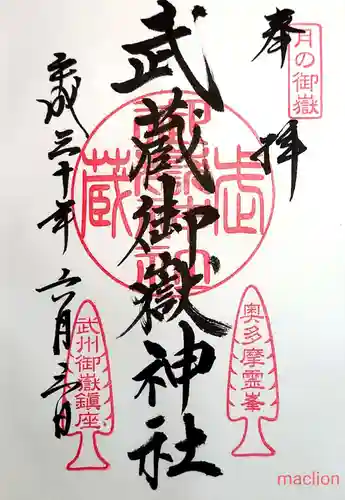 奉拝
月の御嶽
武蔵御嶽神社
平成三十年六月三日
奥多摩霊峯
武州御嶽鎮座
maclion